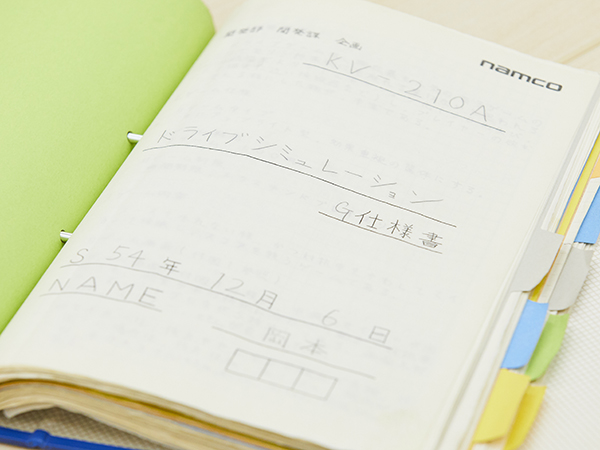 開発部 開発課 企画
namco
KV-210A
ドライブシミュレーション
G仕様書
S 54年 12月 6日
NAME
岡本